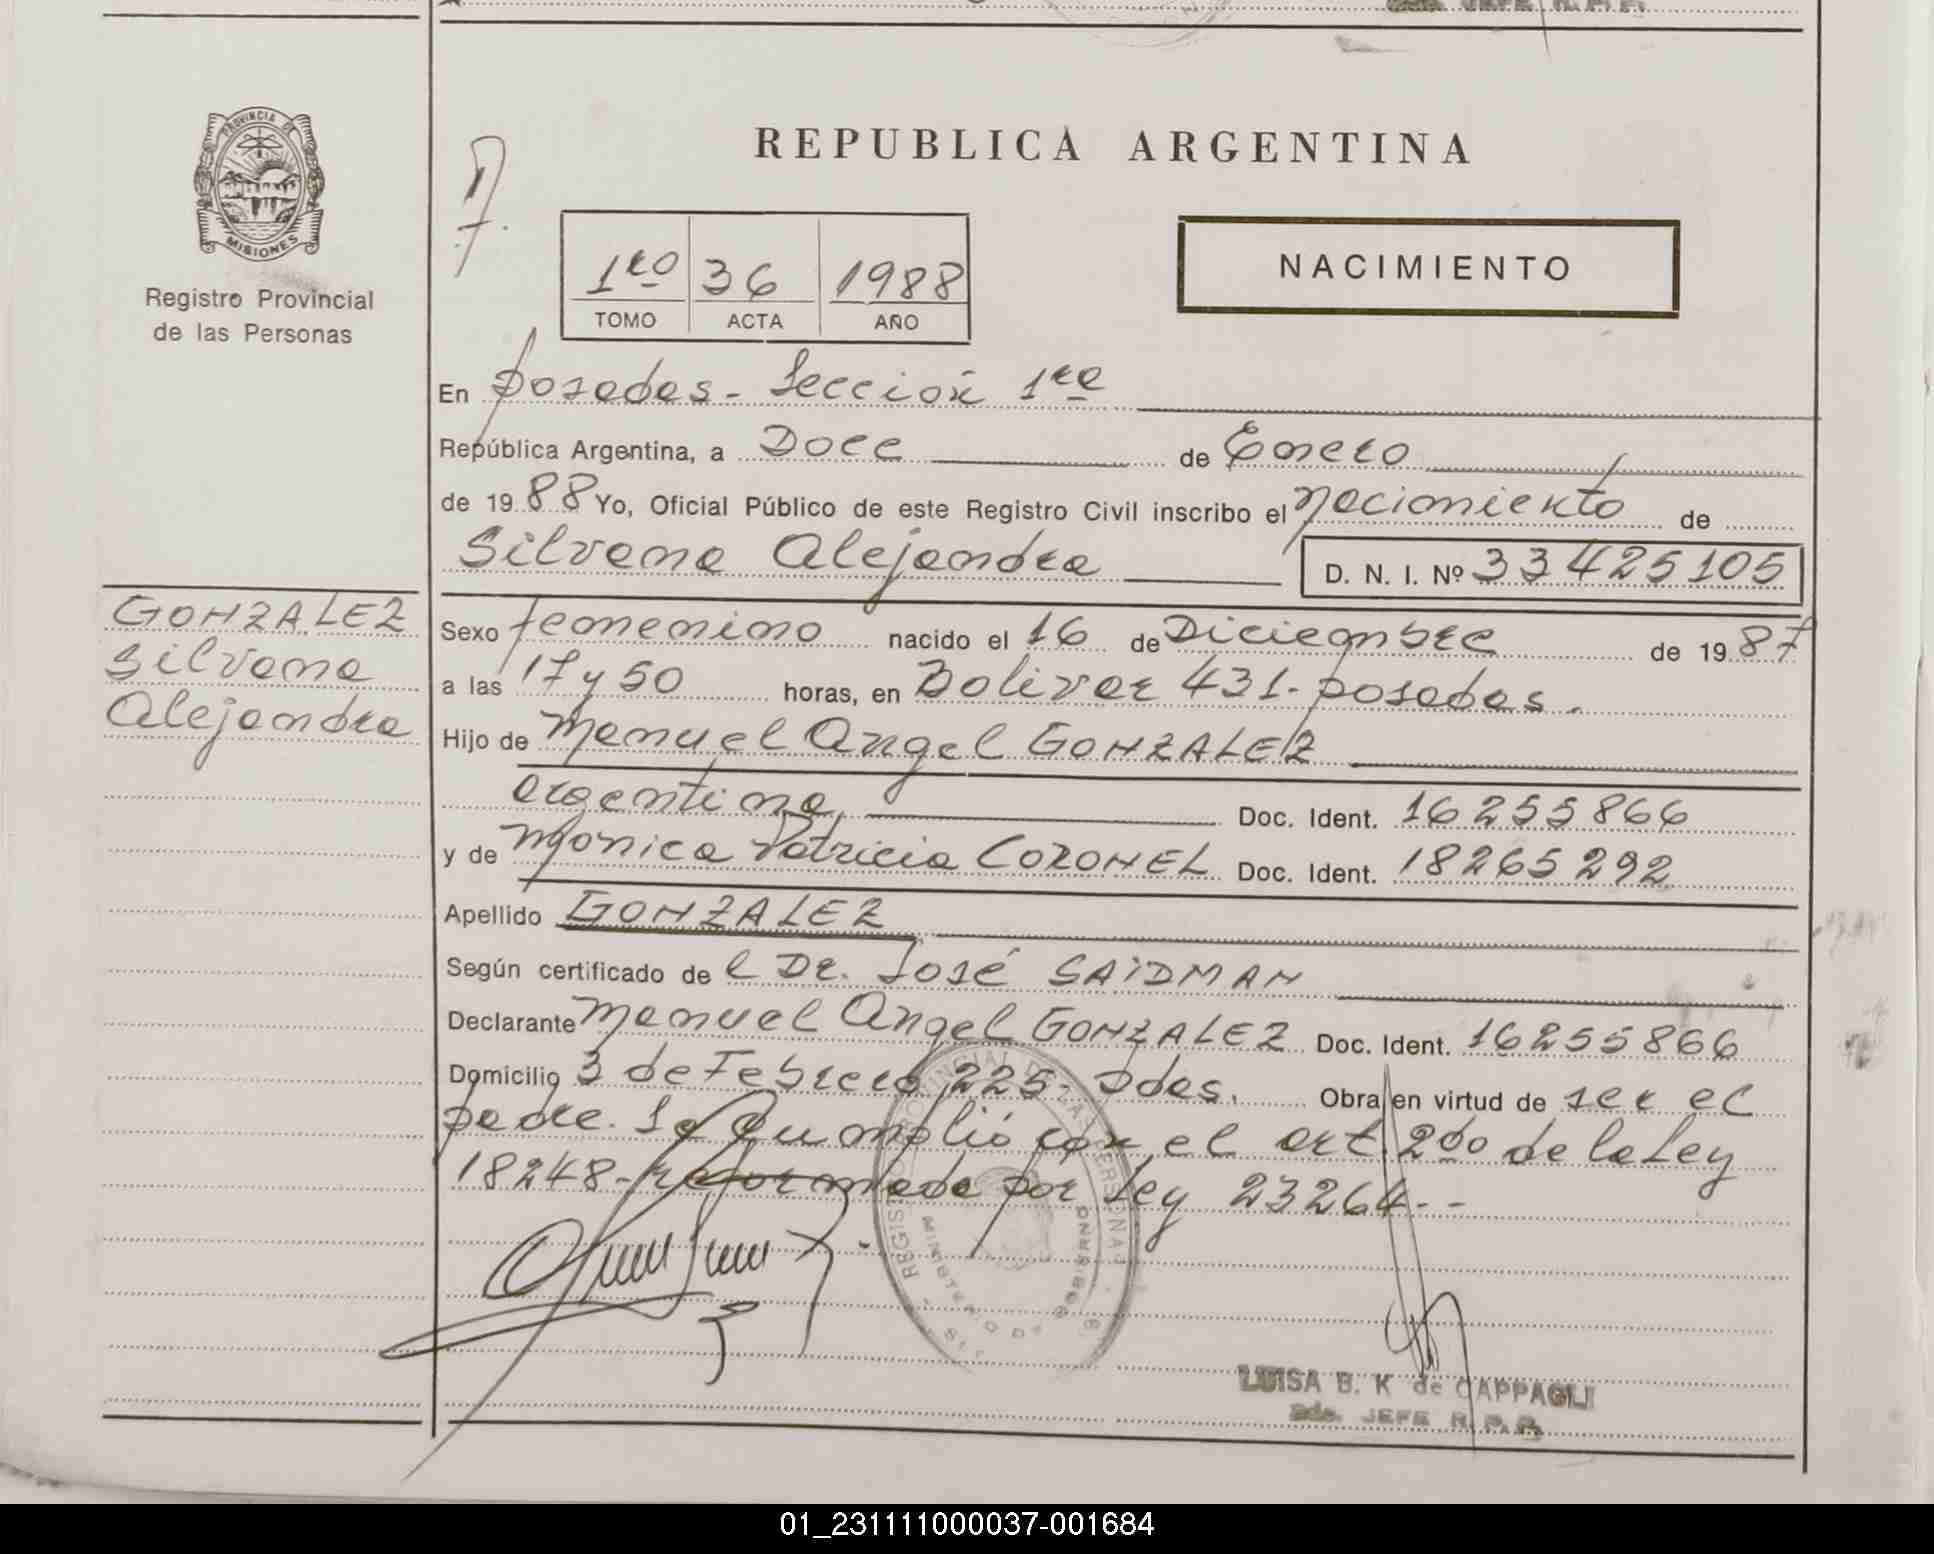 PROVINCIA DE
MISIONES
Registro Provincial
de las Personas
REPUBLICA ARGENTINA
1ro 36 1988
TOMO ACTA AÑO
NACIMIENTO
En Posadas - Sección 1ra
República Argentina, a Doce de Enero
de 1988 Yo, Oficial Público de este Registro Civil inscribo el nacimiento de
Silvana Alejandra D. N. I. Nº 33425105
GONZALEZ
Silvana
Alejandra
Sexo femenino nacido el 16 de Diciembre de 1987
a las 17 y 50 horas, en Bolivar 431 - posadas.
Hijo de Manuel Angel GONZALEZ
argentina Doc. Ident. 16255866
y de Monica Patricia CORONEL Doc. Ident. 18265292
Apellido GONZALEZ
Según certificado de l Dr. José SAIDMAN
Declarante Manuel Angel GONZALEZ Doc. Ident. 16255866
Domicilio 3 de Febrero 225 - Pdas. Obra en virtud de ser el
padre. Se cumplió con el art. 2do de la Ley
18248 - reformada por Ley 23264 - -
LUISA B. K de CAPPAGLI
2do. JEFE R. P. P.
01_231111000037-001684